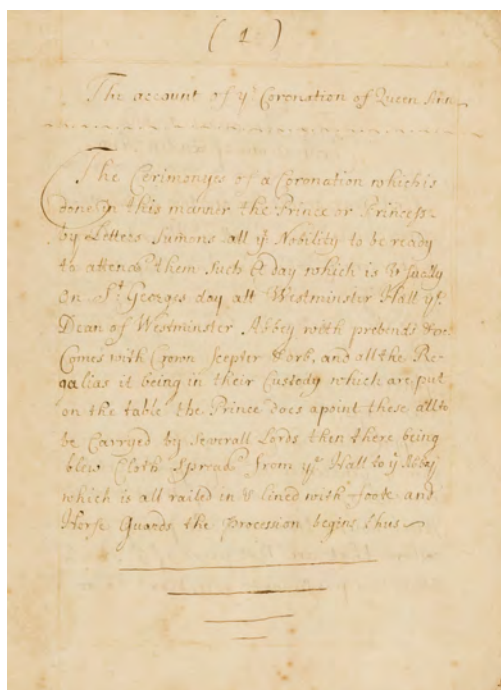 ( 1 )
The account of yᵉ Coronation of Queen Ann
The Cerimonyes of a Coronation which is
done in this manner the Prince or Princess
by Letters Sumons all yᵉ Nobility to be ready
to attend them Such A day which is Usually
on Sᵗ Georges day att Westminster Hall yᵉ
Dean of Westminster Abbey with prebends &c
Comes with Crown Scepter & orb, and all the Re-
galias it being in their Custody which are put
on the table the Prince does apoint these all to
be Carryed by Severall Lords then there being
blew Cloth Spread from yᵉ Hall to yᵉ Abbey
which is all railed in & lined with foot and
Horse Guards the procession begins thus